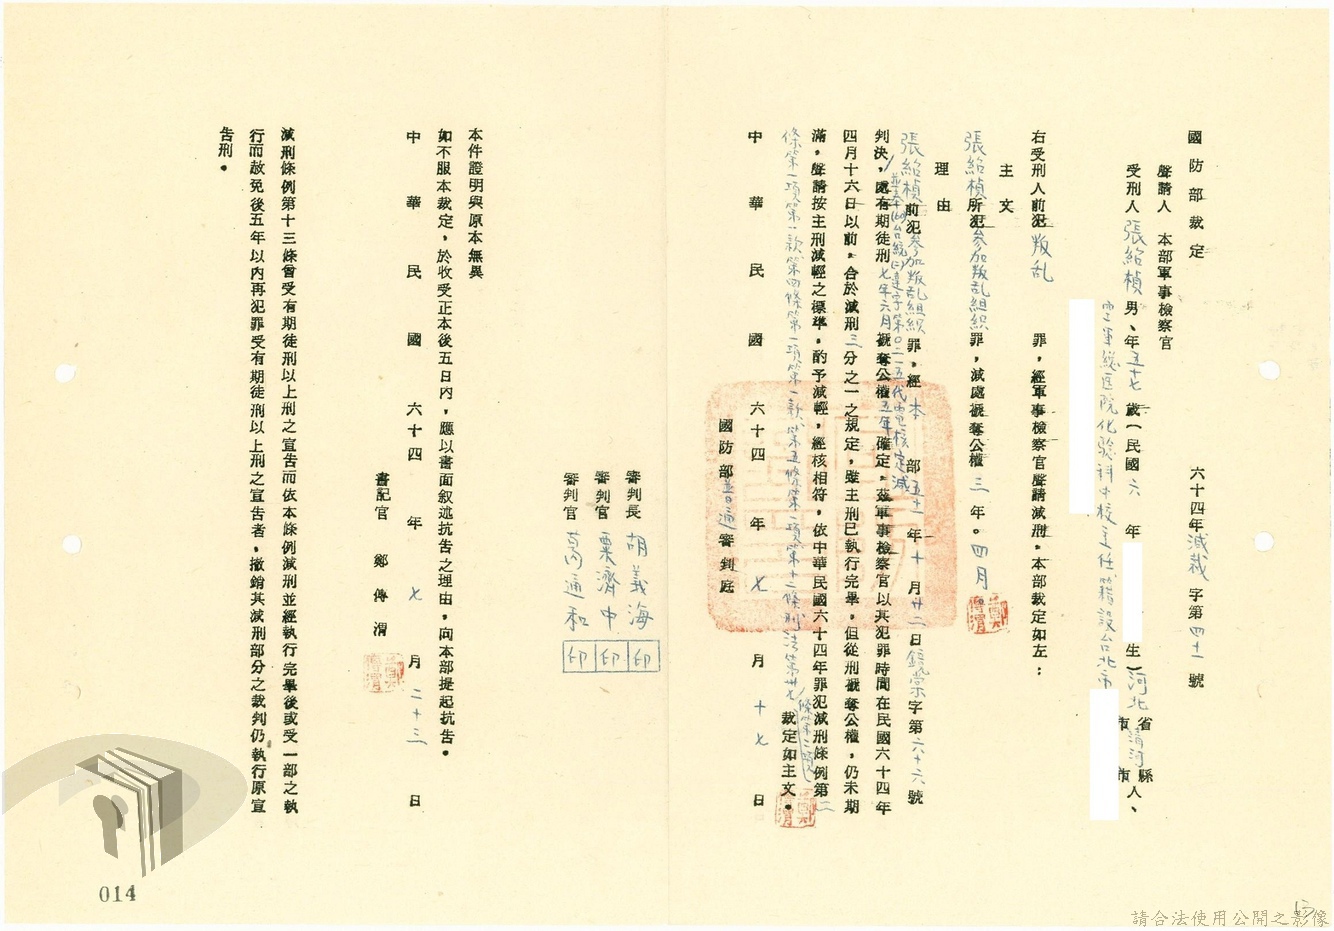 國防部裁定　六十四年減裁字第四十一號
聲請人　本部軍事檢察官
受刑人　張紹楨　男、年五十七歲（民國六年　生）河北省市清河縣市人、
空軍總医院化驗科中校主任籍設台北市
右受刑人前犯叛乱罪，經軍事檢察官聲請減刑，本部裁定如左：
主文
張紹楨所犯參加叛乱組織罪，減處褫奪公權三年。四月
理由
張紹楨前犯參加叛乱組織罪，經本部五十一年十月廿二日鏡榮字第六十六號
並奉(60)台統(二)達字第〇二一五代電核定減
判決，處有期徒刑七年六月褫奪公權五年確定，茲軍事檢察官以其犯罪時間在民國六十四年
四月十六日以前，合於減刑三分之一之規定，雖主刑已執行完畢，但從刑褫奪公權，仍未期
滿，聲請按主刑減輕之標準，酌予減輕，經核相符，依中華民國六十四年罪犯減刑條例第二
條第一項第一款第四條第一項第一款第五條第一項第十二條刑法第卅七條第二項裁定如主文。
中華民國六十四年七月十七日
國防部普通審判庭
審判長　胡義海　印
審判官　粟濟中　印
審判官　葛通和　印
本件證明與原本無異
如不服本裁定，於收受正本後五日內，應以書面叙述抗告之理由，向本部提起抗告。
中華民國六十四年七月二十三日
書記官　鄭傳渭
減刑條例第十三條曾受有期徒刑以上刑之宣告而依本條例減刑並經執行完畢後或受一部之執
行而赦免後五年以內再犯罪受有期徒刑以上刑之宣告者，撤銷其減刑部分之裁判仍執行原宣
告刑。
014
13
請合法使用公開之影像